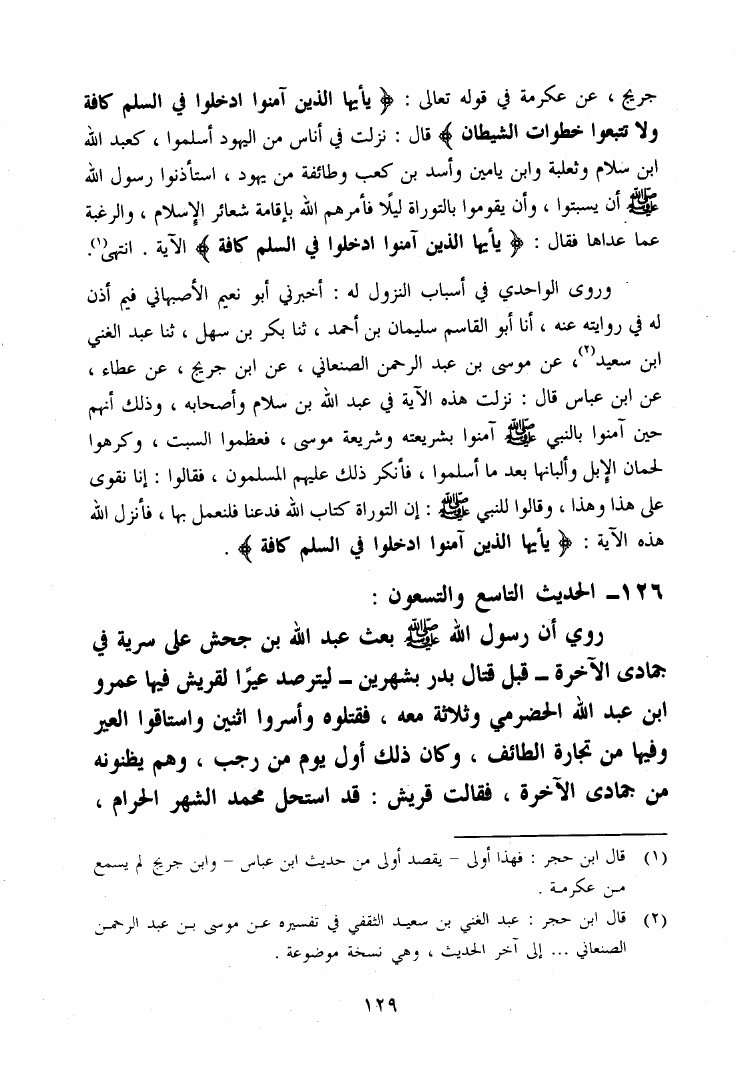 جريج ، عن عكرمة في قوله تعالى : ﴿ يأيها الذين آمنوا ادخلوا في السلم كافة
ولا تتبعوا خطوات الشيطان ﴾ قال : نزلت في أناس من اليهود أسلموا ، كعبد الله
ابن سلام وثعلبة وابن يامين وأسد بن كعب وطائفة من يهود ، استأذنوا رسول الله
ﷺ أن يسبتوا ، وأن يقوموا بالتوراة ليلًا فأمرهم الله بإقامة شعائر الإسلام ، والرغبة
عما عداها فقال : ﴿ يأيها الذين آمنوا ادخلوا في السلم كافة ﴾ الآية . انتهى(١).
وروى الواحدي في أسباب النزول له : أخبرني أبو نعيم الأصبهاني فيم أذن
له في روايته عنه ، أنا أبو القاسم سليمان بن أحمد ، ثنا بكر بن سهل ، ثنا عبد الغني
ابن سعيد(٢)، عن موسى بن عبد الرحمن الصنعاني ، عن ابن جريج ، عن عطاء ،
عن ابن عباس قال : نزلت هذه الآية في عبد الله بن سلام وأصحابه ، وذلك أنهم
حين آمنوا بالنبي ﷺ آمنوا بشريعته وشريعة موسى ، فعظموا السبت ، وكرهوا
لحمان الإبل وألبانها بعد ما أسلموا ، فأنكر ذلك عليهم المسلمون ، فقالوا : إنا نقوى
على هذا وهذا ، وقالوا للنبي ﷺ : إن التوراة كتاب الله فدعنا فلنعمل بها ، فأنزل الله
هذه الآية : ﴿ يأيها الذين آمنوا ادخلوا في السلم كافة ﴾ .
١٢٦ـ الحديث التاسع والتسعون :
روي أن رسول الله ﷺ بعث عبد الله بن جحش على سرية في
جمادى الآخرة ـ قبل قتال بدر بشهرين ـ ليترصد عيرًا لقريش فيها عمرو
ابن عبد الله الحضرمي وثلاثة معه ، فقتلوه وأسروا اثنين واستاقوا العير
وفيها من تجارة الطائف ، وكان ذلك أول يوم من رجب ، وهم يظنونه
من جمادى الآخرة ، فقالت قريش : قد استحل محمد الشهر الحرام ،
(١) قال ابن حجر : فهذا أولى – يقصد أولى من حديث ابن عباس – وابن جريج لم يسمع
من عكرمة .
(٢) قال ابن حجر : عبد الغني بن سعيد الثقفي في تفسيره عن موسى بن عبد الرحمن
الصنعاني ... إلى آخر الحديث ، وهي نسخة موضوعة .
١٢٩